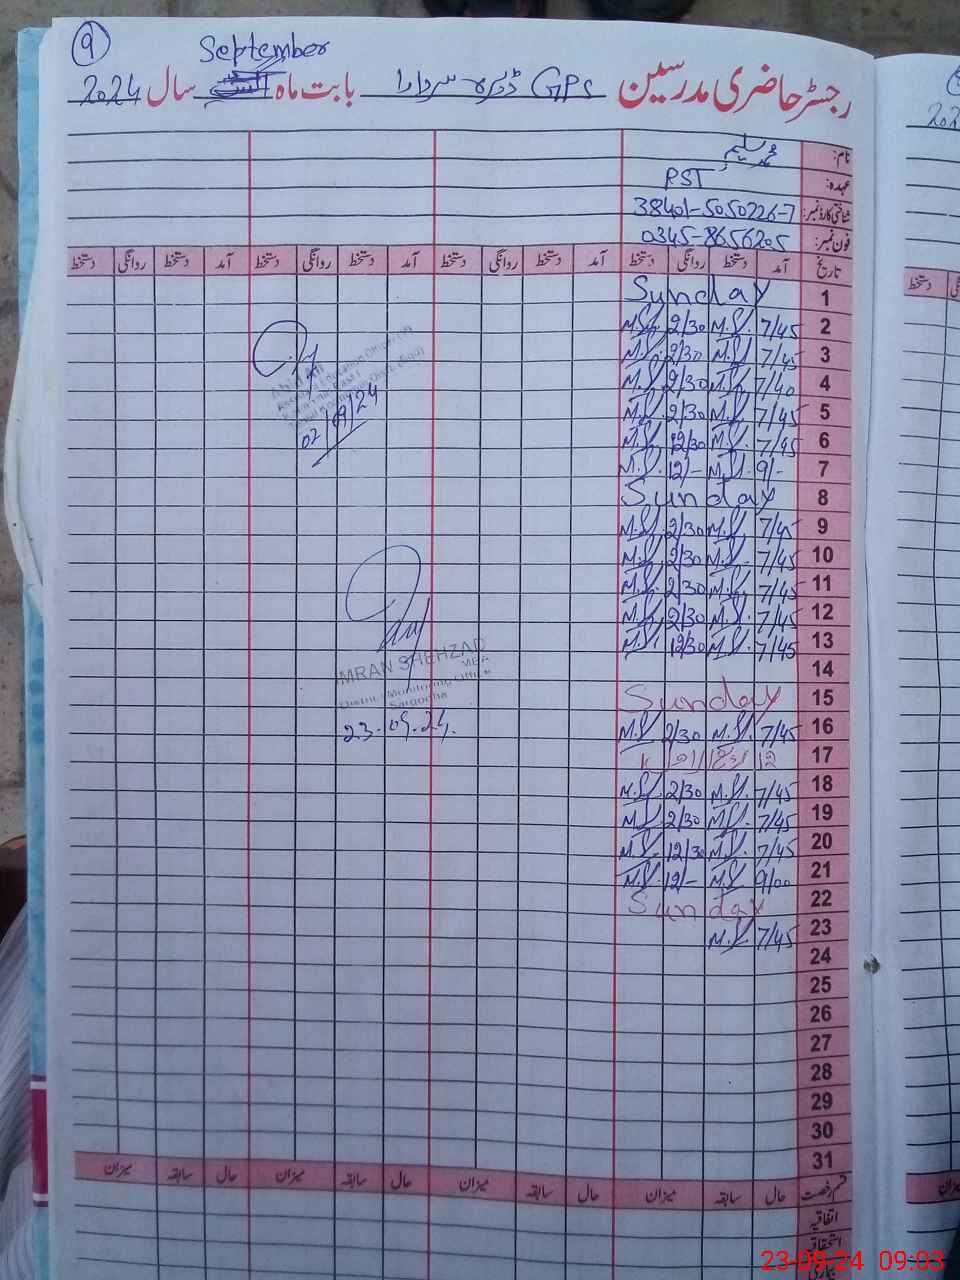 9
September
رجسٹر حاضری مدرسین GPS ڈیرہ سردارا بابت ماہ سال 2024
نام: محمد سلیم
عہدہ: PST
شناختی کارڈ نمبر: 38401-5050226-7
فون نمبر: 0345-8656205
تاریخ آمد دستخط روانگی دستخط آمد دستخط روانگی دستخط آمد دستخط روانگی دستخط آمد دستخط روانگی دستخط
1 Sunday
2 7/45 M.S. 2/30 M.S.
3 7/45 M.S. 2/30 M.S.
4 7/40 M.S. 2/30 M.S.
5 7/45 M.S. 2/30 M.S.
6 7/45 M.S. 12/30 M.S.
7 9/- M.S. 12/- M.S.
8 Sunday
9 7/45 M.S. 2/30 M.S.
10 7/45 M.S. 2/30 M.S.
11 7/45 M.S. 2/30 M.S.
12 7/45 M.S. 2/30 M.S.
13 7/45 M.S. 12/30 M.S.
14
15 Sunday
16 7/45 M.S. 2/30 M.S.
17 12 ربیع الاول
18 7/45 M.S. 2/30 M.S.
19 7/45 M.S. 2/30 M.S.
20 7/45 M.S. 12/30 M.S.
21 9/00 M.S. 12/- M.S.
22 Sunday
23 7/45 M.S.
24
25
26
27
28
29
30
31
02/09/24
IMRAN SHEHZAD
District Monitoring Officer
Sargodha
23-09-24.
قسم رخصت حال سابقہ میزان حال سابقہ میزان حال سابقہ میزان حال سابقہ میزان
اتفاقیہ
استحقاقیہ
بیماری
202
دستخط
میزان
23-09-24 09:03